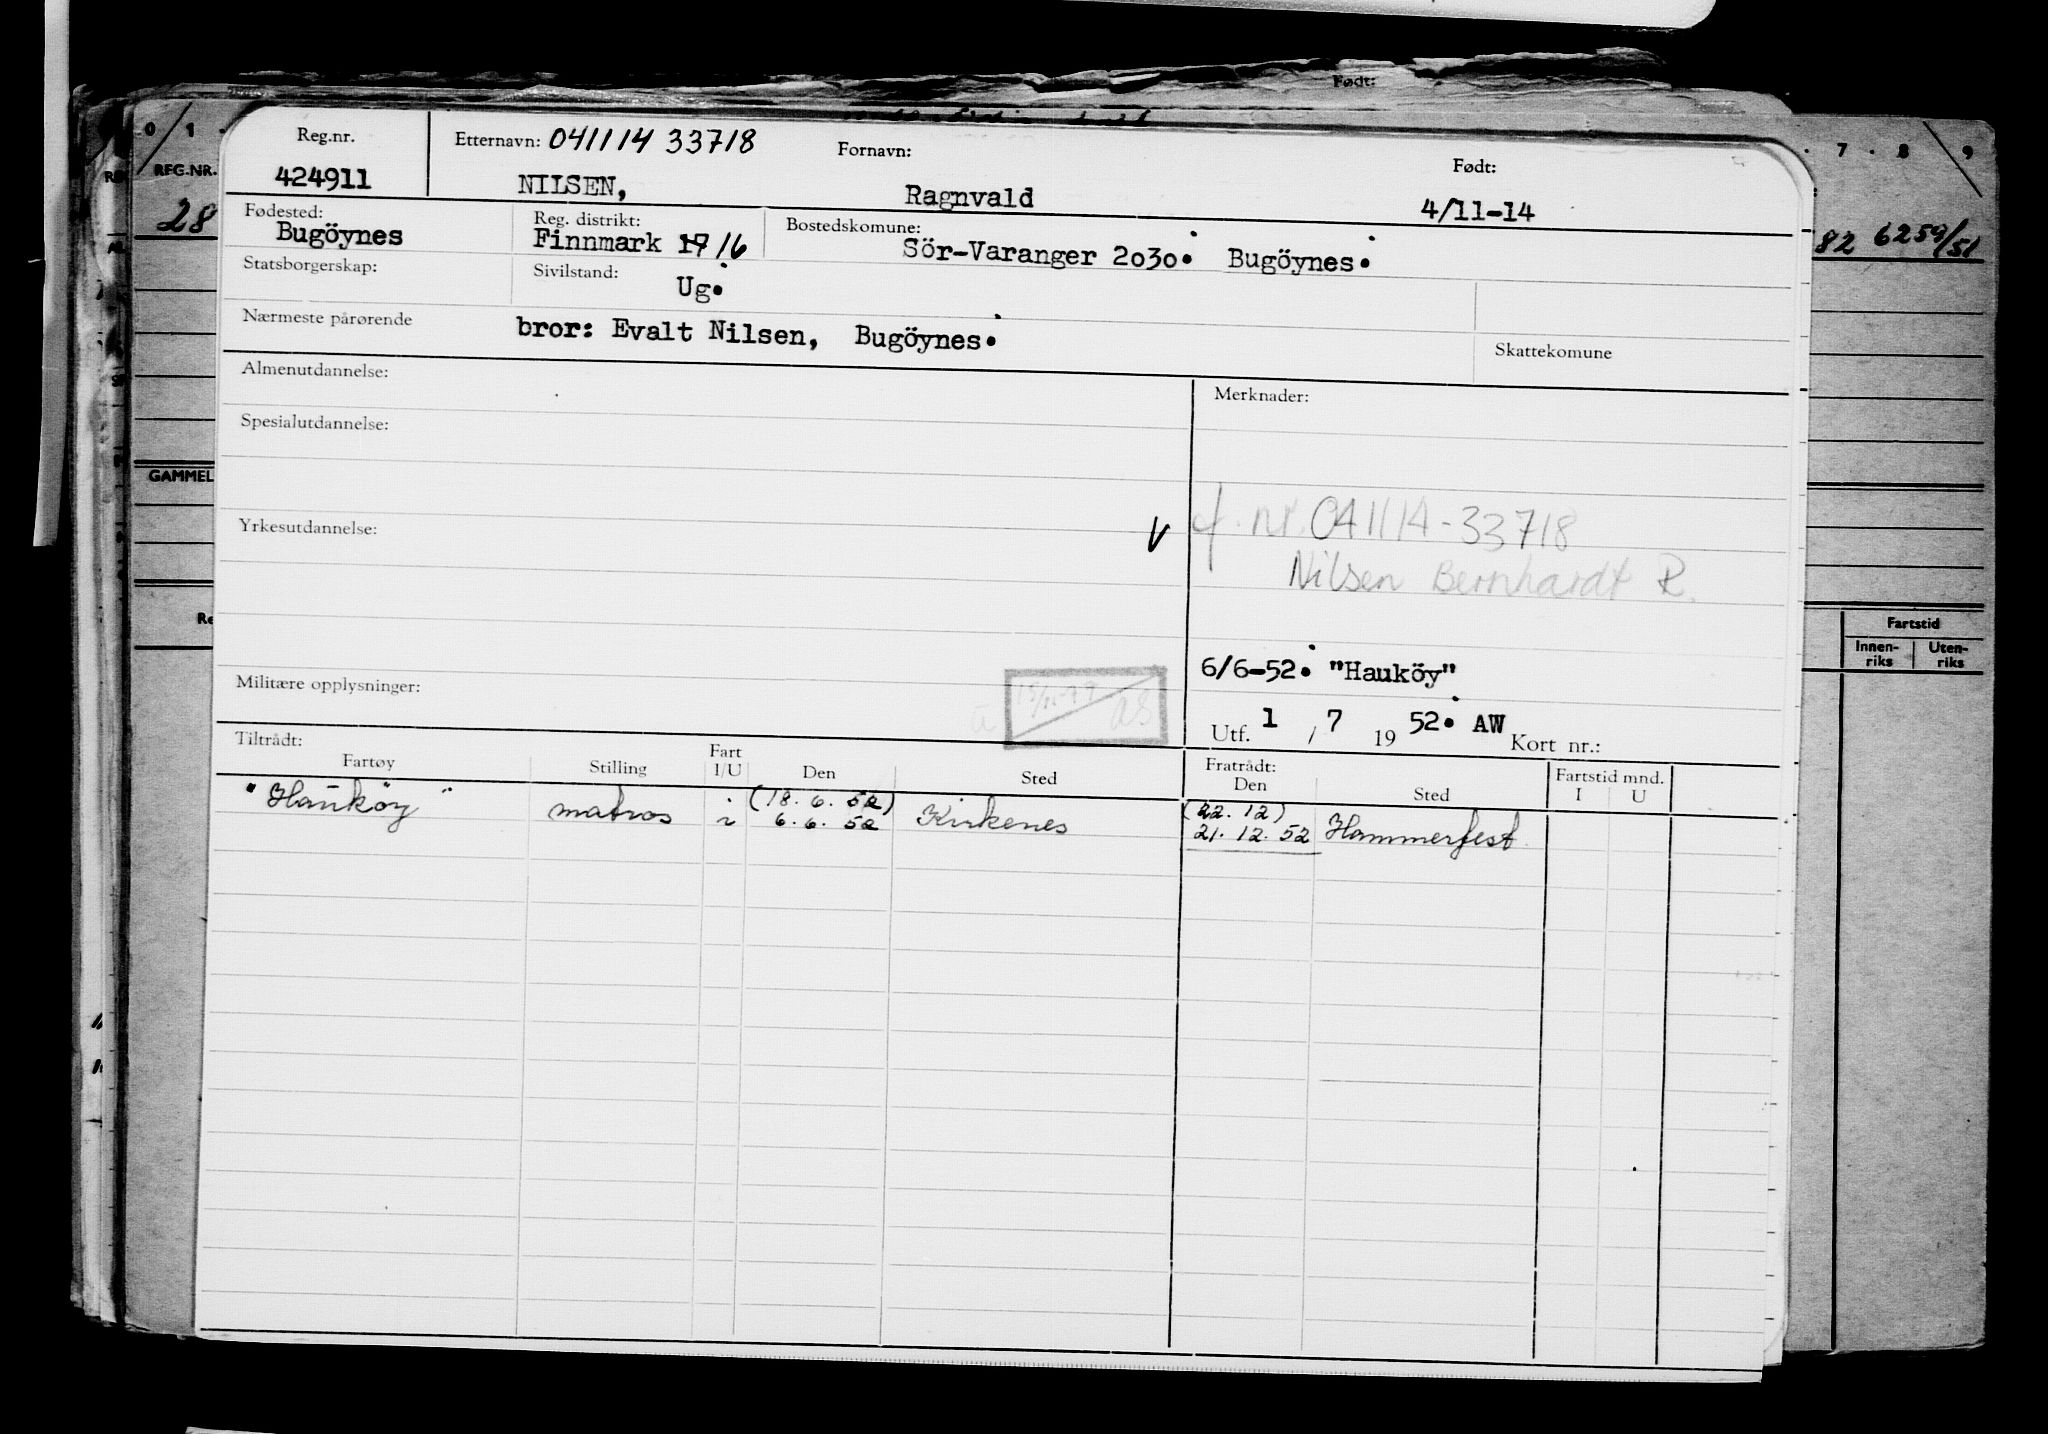 Født:
0 1
Reg.nr. Etternavn: 041114 33718 Fornavn: Født:
7 8 9
REG.NR.
424911 NILSEN, Ragnvald 4/11-14
28
Fødested: Reg. distrikt: Bostedskomune:
Bugöynes Finnmark 17/6 Sör-Varanger 2030. Bugöynes.
82 6259/51
Statsborgerskap: Sivilstand: Ug.
Nærmeste pårørende bror: Evalt Nilsen, Bugöynes.
Skattekomune
Almenutdannelse: Merknader:
Spesialutdannelse:
GAMMEL
f. nr. 041114-33718
Yrkesutdannelse: V
Nilsen Bernhardt R.
Fartstid
Innen-riks Uten-riks
6/6-52. "Hauköy"
Militære opplysninger:
Utf. 1 / 7 1952. AW Kort nr.:
Tiltrådt: Fratrådt: Fartstid mnd.
Fartøy Stilling Fart I/U Den Sted Den Sted I U
(18. 6. 52) (22. 12)
"Hauköy" matros i 6. 6. 52 Kirkenes 21. 12. 52 Hammerfest